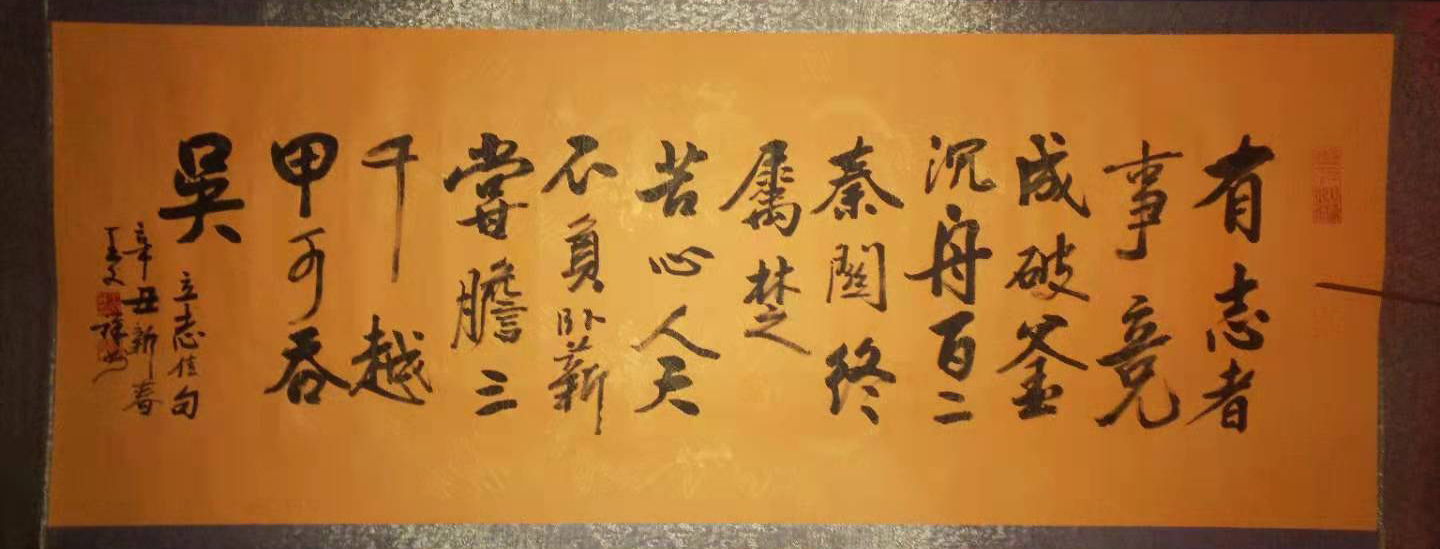 有志者
事竟
成破釜
沉舟百二
秦關終
属楚
苦心人天
不負卧薪
甞膽三
千越
甲可吞
吳
立志佳句
辛丑新春